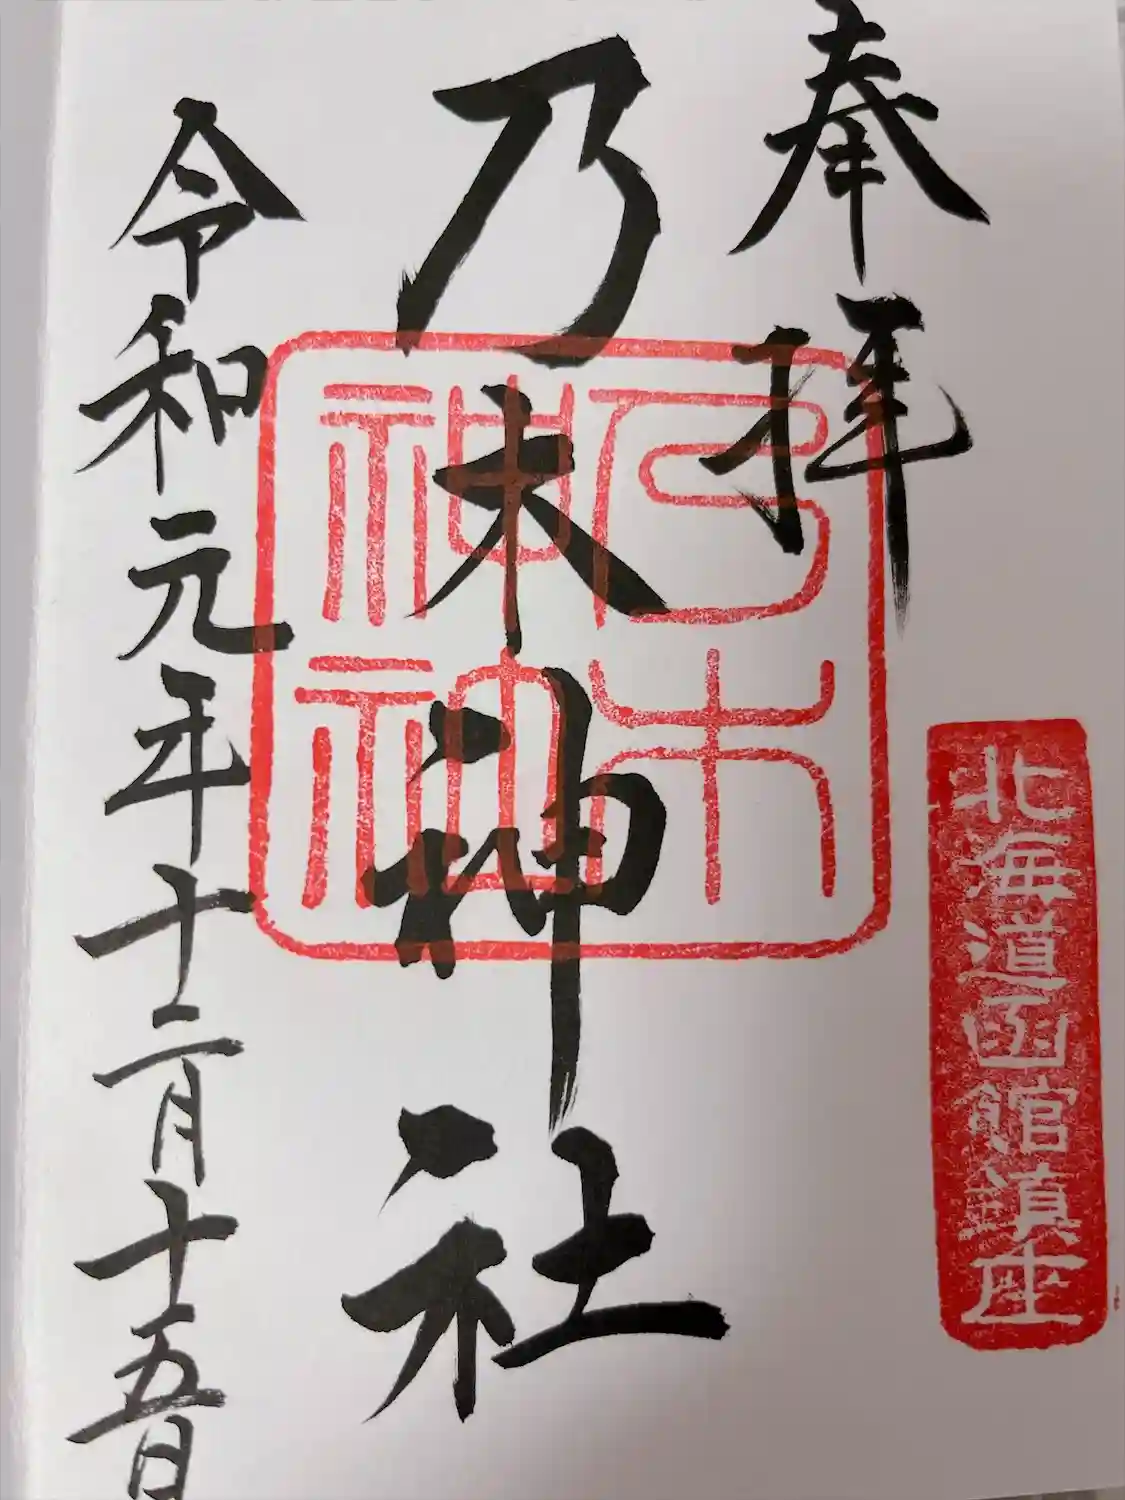 奉拝
北海道函館鎮座
乃木神社
乃木
神社
令和元年十二月十五日